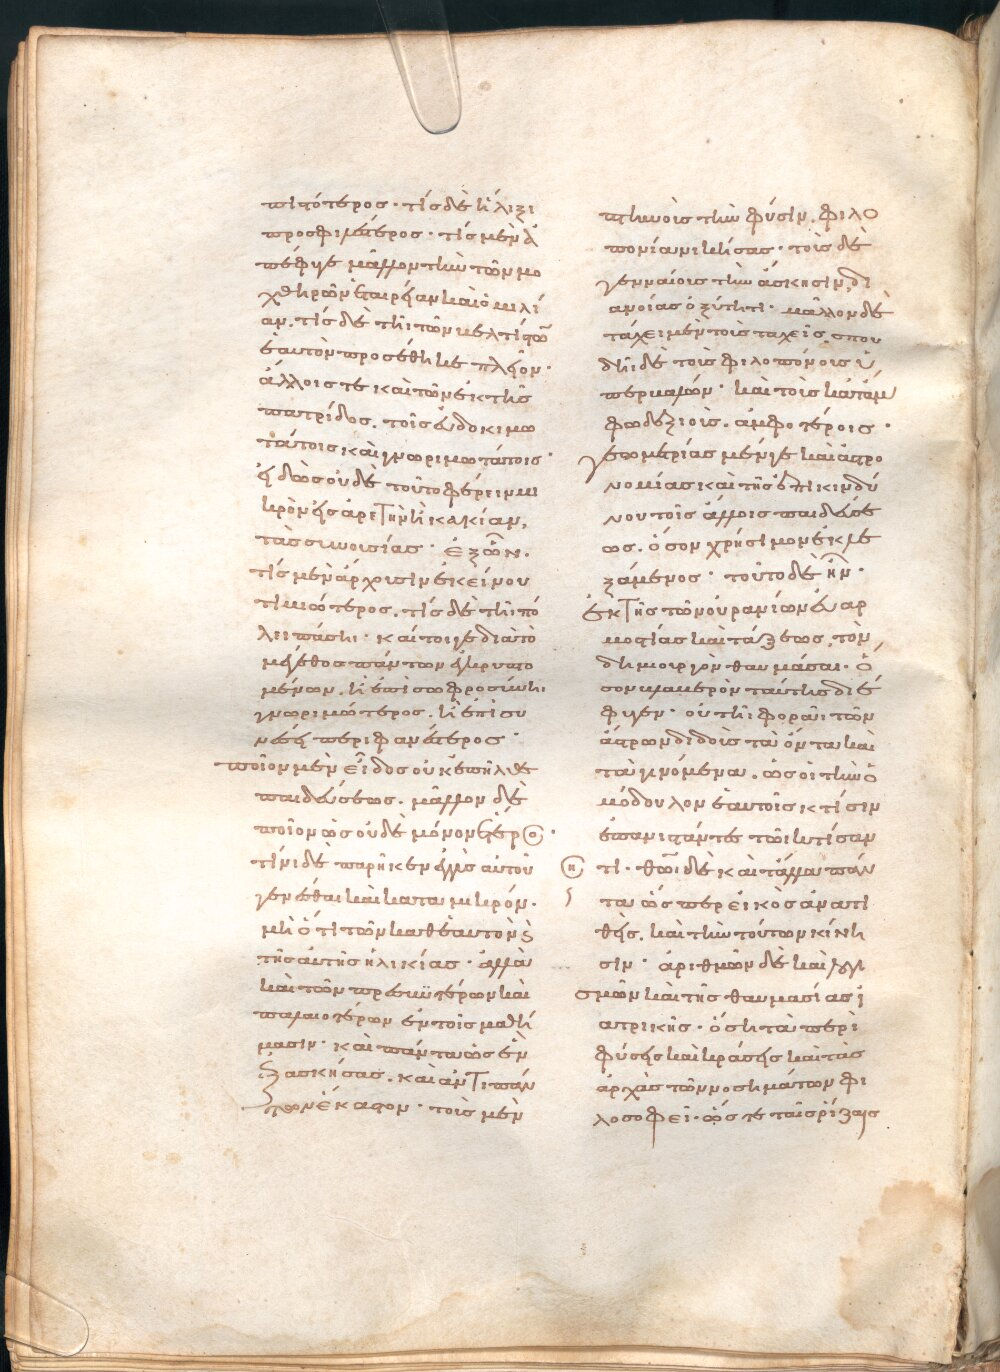 πιστότερος· τίς δὲ ἥλιξι
προσφιλέστερος· τίς μὲν ἀ
πέφυγε μᾶλλον τὴν τῶν μο
χθηρῶν ἑταιρείαν καὶ ὁμιλί
αν. τίς δὲ τῆι τῶν βελτίστω
ἑαυτὸν προσέθηκε πλεῖον·
ἄλλοις τε καὶ τῶν ἐκ τῆς
πατρίδος. τοῖς εὐδοκιμω
τάτοις καὶ γνωριμωτάτοις·
εἰδὼς οὐδὲ τοῦτο φέρειν μι
κρὸν εἰς ἀρετὴν ἢ κακίαν,
τὰς συνουσίας· ἐξ ὧν.
τίς μὲν ἄρχουσιν ἐκείνου
τιμιώτερος. τίς δὲ τῆι πό
λει πάσηι· καίτοιγε διὰ τὸ
μέγεθος πάντων ἐγκρυπτο
μένων. ἢ ἐπὶ σωφροσύνηι
γνωριμώτερος. ἢ ἐπὶ συ
νέσει περιφανέστερος·
ποῖον μὲν εἶδος οὐκ ἐπῆλθε
παιδεύσεως. μᾶλλον δὲ
ποῖον ὡς οὐδὲ μόνον ἕτερος·
τίνι δὲ παρῆκεν ἐγγὺς αὐτοῦ
γενέσθαι καὶ κατὰ μικρόν.
μὴ ὅτι τῶν καθ' ἑαυτὸν ϗ
τῆς αὐτῆς ἡλικίας· ἀλλὰ
καὶ τῶν πρεσβυτέρων καὶ
παλαιοτέρων ἐν τοῖς μαθή
μασιν· καὶ πάντα ὡς ἓν
ἐξασκήσας. καὶ ἀντὶ πάν
των ἕκαστον· τοὺς μὲν
πτηνοὺς τὴν φύσιν. φιλο
πονίαι νικήσας· τοὺς δὲ
γενναίους τὴν ἄσκησιν, δι
ανοίας ὀξύτητι· μᾶλλον δὲ
τάχει μὲν τοὺς ταχεῖς, σπου
δῆι δὲ τοὺς φιλοπόνους ὑ
περβαλών· καὶ τοὺς κατάμ
φω δεξιοὺς. ἀμφοτέροις·
γεωμετρίας μέν γε καὶ ἀστρο
νομίας καὶ τῆς ἐπικινδύ
νου τοῖς ἄλλοις παιδεύσε
ως. ὅσον χρήσιμον ἐκλε
ξάμενος· τοῦτο δὲ ἦν·
ἐκ τῆς τῶν οὐρανίων εὐαρ
μοστίας καὶ τάξεως, τὸν
δημιουργὸν θαυμάσαι· ὅ
σον βλαβερὸν ταύτης διέ
φυγεν· οὐ τῆι φορᾶι τῶν
ἄστρων διδοὺς τὰ ὄντα καὶ
τὰ γινόμενα. ὡς οἱ τὴν ὁ
μόδουλον ἑαυτοῖς κτίσιν
ἐπανιστάντες τῶι κτίσαν
τι· θῶι δὲ καὶ τἄλλα πάν
τα ὥσπερ εἰκὸς ἀνατι
θεὶς. καὶ τὴν τούτων κίνη
σιν· ἀριθμῶν δὲ καὶ λογι
σμῶν καὶ τῆς θαυμασίας ἰ
ατρικῆς· ὅση τὰ περὶ
φύσεις καὶ κράσεις καὶ τὰς
ἀρχὰς τῶν νοσημάτων φι
λοσοφεῖ· ὥστε ταῖς ῥίζαις